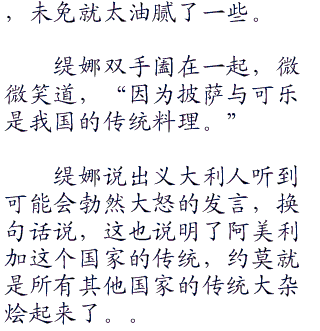 ，未免就太油腻了一些。
缇娜双手阖在一起，微
微笑道，“因为披萨与可乐
是我国的传统料理。”
缇娜说出义大利人听到
可能会勃然大怒的发言，换
句话说，这也说明了阿美利
加这个国家的传统，约莫就
是所有其他国家的传统大杂
烩起来了。。